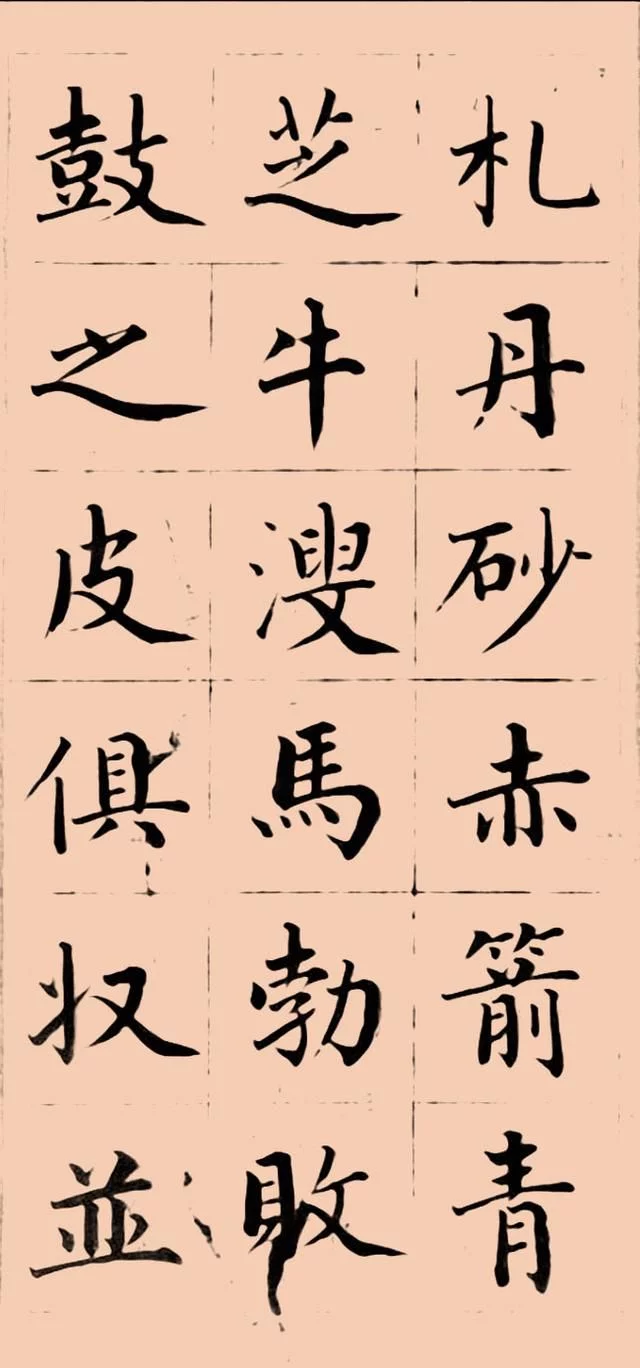 札丹砂赤箭青
芝牛溲馬勃敗
鼓之皮俱収並